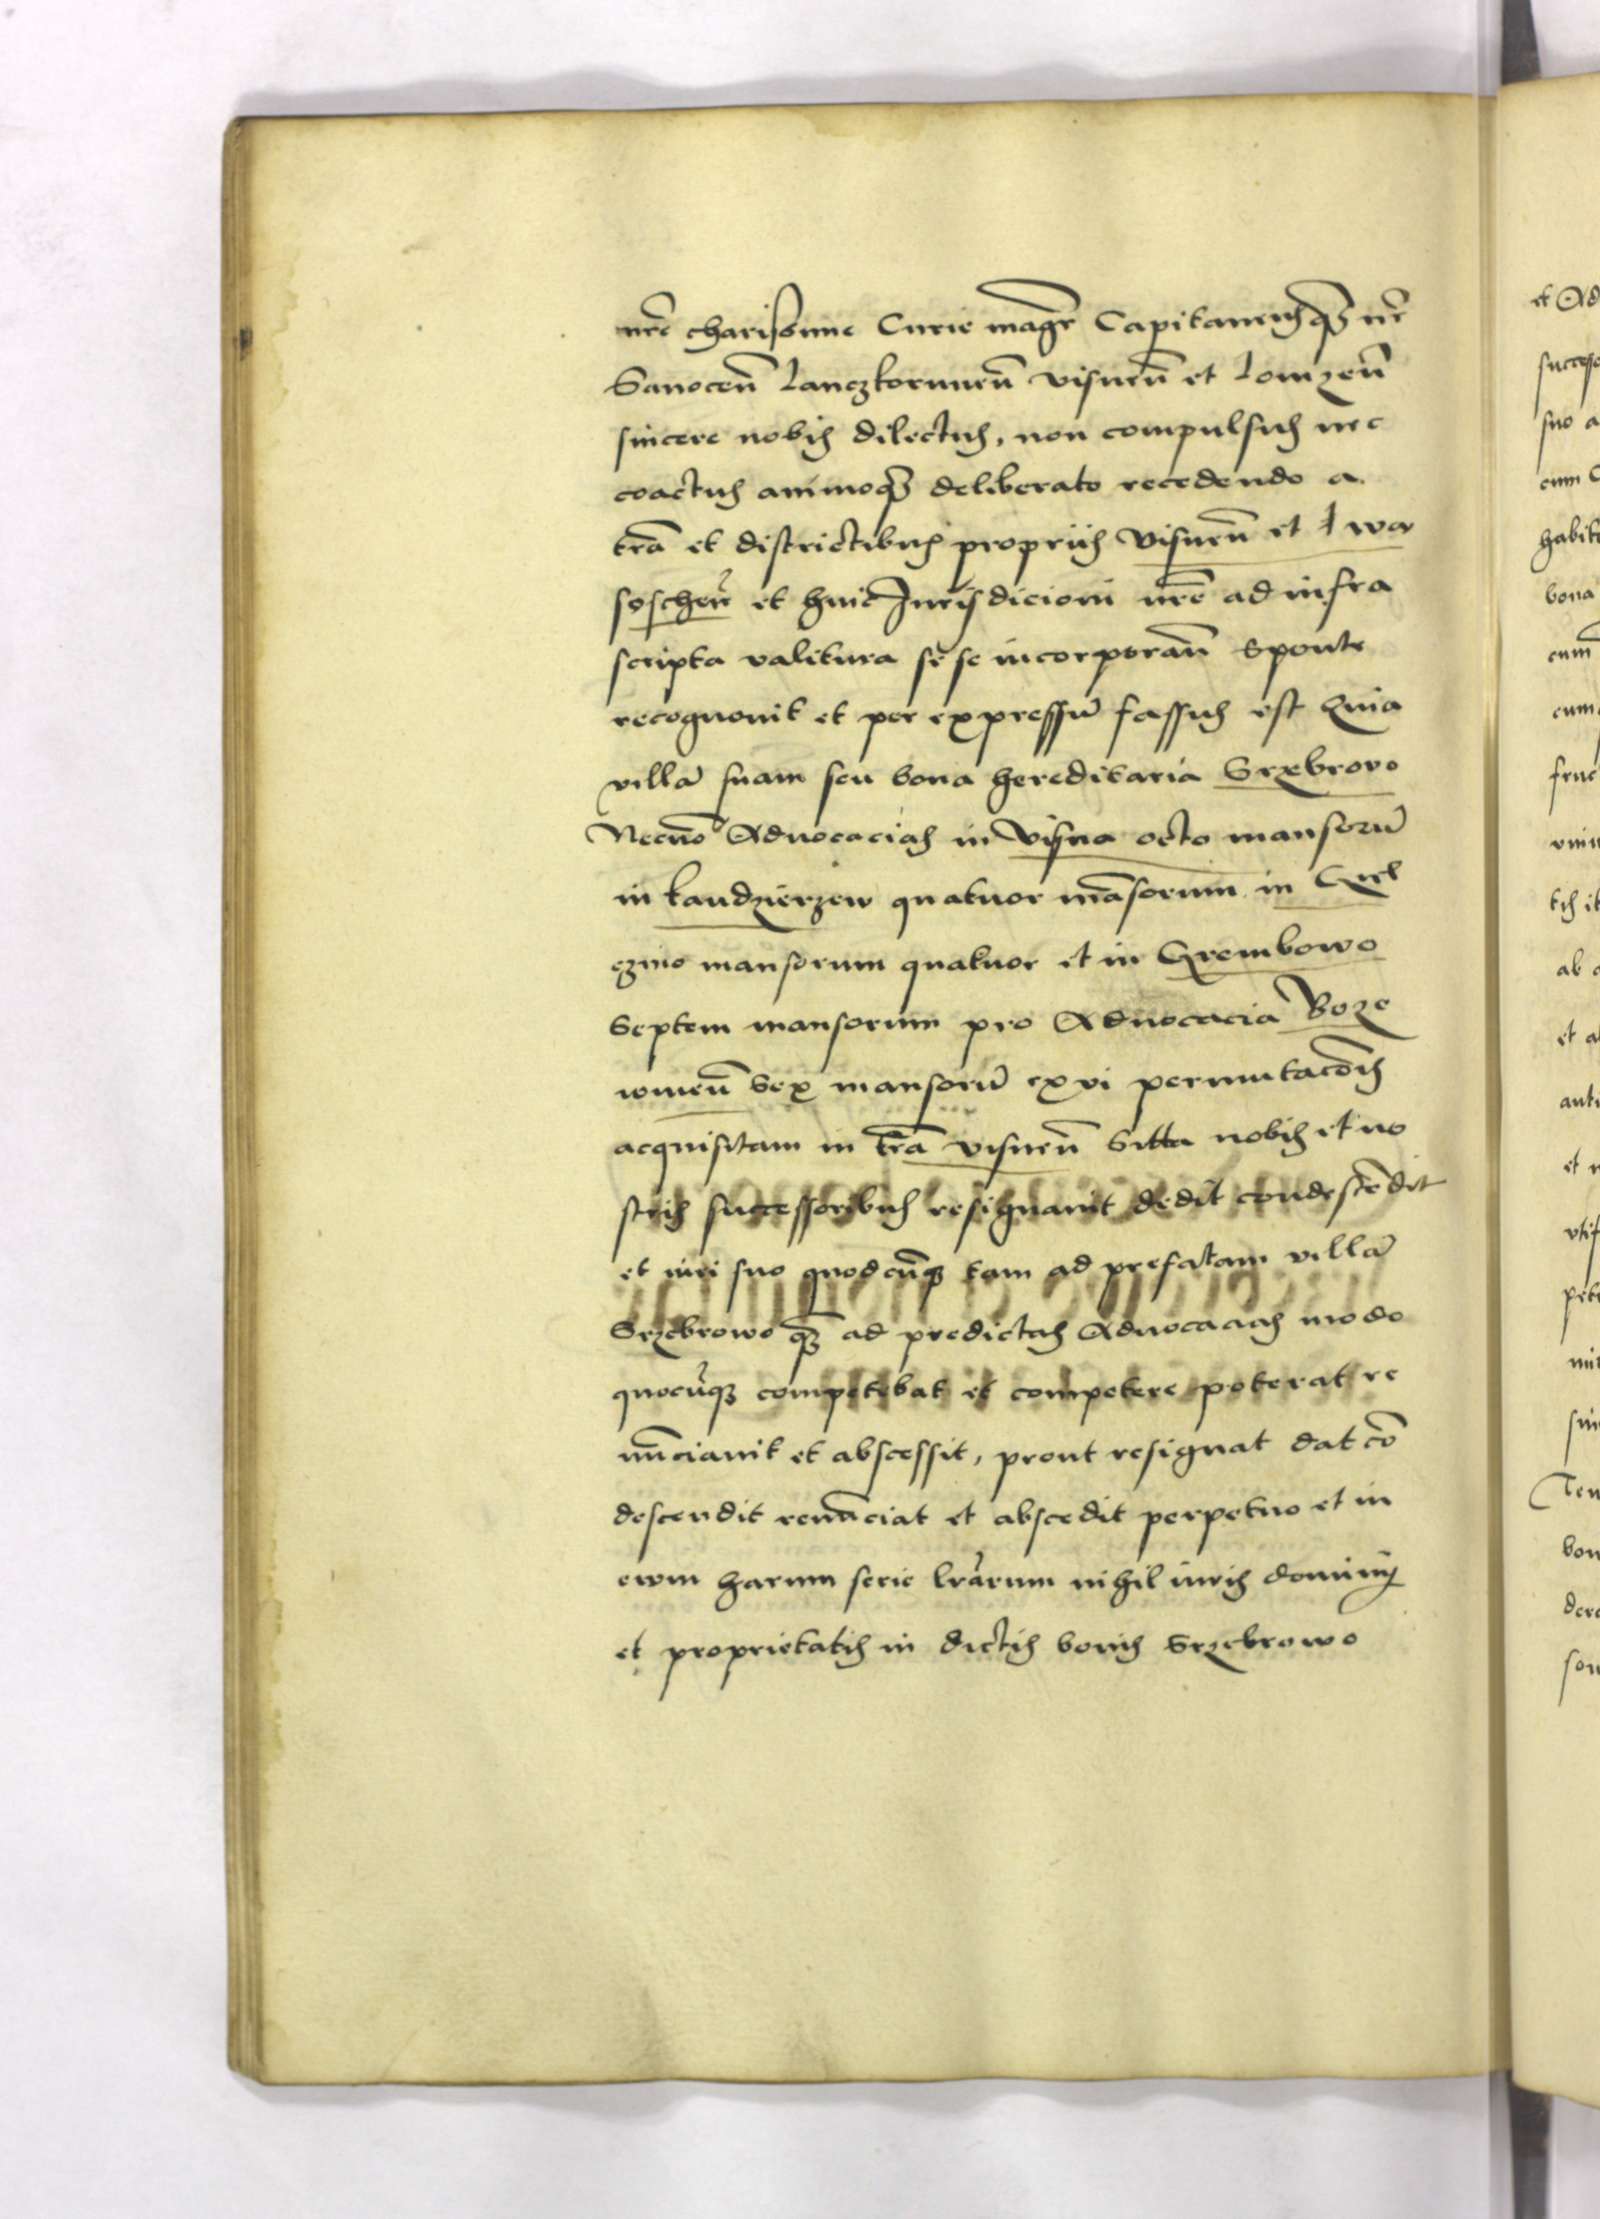 nr̃e charissime Curie magr̃ Capitaneusq̃ nr̃
Sanocen̄ Lanczkorunen̄ visnen̄ et Lomzen̄
sincere nobis dilectus, non compulsus nec
coactus animoq̃ deliberato recedendo a
tr̃a et districtibus propriis visnen̄ et Iwa
soschen̄ et huic Iurisdicioni nr̃e ad infra
scripta valitura se se incorporan̄ sponte
recognovit et per expressū fassus est Quia
villā suam seu bona hereditaria Srzebrowo
Necnō Advocacias in visna octo mansorū
in kandzierzew quatuor māsorum in
czino mansorum quatuor et in Grembowo
Septem mansorum pro Advocacia Boze
iowen̄ Sex mansorū ex vi permutacōis
acquisitam in tr̃a visnen̄ Sitta nobis et no
stris successoribus resignavit dedit condescēdit
et iuri suo quodcūq tam ad prefatam villā
Srzebrowo q̃ ad predictas Advocacias modo
quocūq competebat et competere poterat re
nūciavit et abscessit, prout resignat dat cō
descendit renūciat et abscedit perpetuo et in
ewm harum serie lrārum nihil iuris dominij
et proprietatis in dictis bonis Srzebrowo